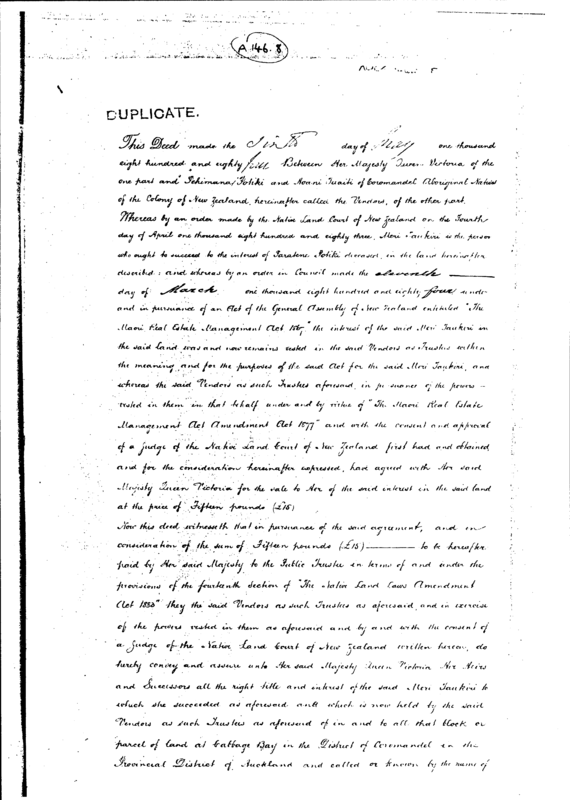 A 146.8
DUPLICATE.
This Deed made the Sixth day of May one thousand
eight hundred and eighty four Between Her Majesty Queen Victoria of the
one part and Potiki and Hoani of Coromandel Aboriginal Natives
of the Colony of New Zealand, hereinafter called the Vendors, of the other part.
Whereas by an order made by the Native Land Court of New Zealand on the Fourth
day of April one thousand eight hundred and eighty three, Meri Taukiri is the person
who ought to succeed to the interest of Paratene Potiki deceased, in the land hereinafter
described: and whereas by an order in Council made the eleventh
day of March one thousand eight hundred and eighty four under
and in pursuance of an Act of the General Assembly of New Zealand entituled "The
Maori Real Estate Management Act the interest of the said Meri Taukiri in
the said land was and now remains vested in the said Vendors as Trustees within
the meaning and for the purposes of the said Act for the said Meri Taukiri, and
whereas the said Vendors as such Trustees aforesaid, in pursuance of the powers
vested in them in that behalf under and by virtue of "The Maori Real Estate
Management Act Amendment Act 1877" and with the consent and approval
of a Judge of the Native Land Court of New Zealand first had and obtained
and for the consideration hereinafter expressed, had agreed with Her said
Majesty Queen Victoria for the sale to Her of the said interest in the said land
at the price of Fifteen pounds (£15)
Now this deed witnesseth that in pursuance of the said agreement, and in
consideration of the sum of Fifteen pounds (£15) to be hereafter
paid by Her said Majesty to the Public Trustee in terms of and under the
provisions of the fourteenth section of "The Native Land Laws Amendment
Act 1883" they the said Vendors as such Trustees as aforesaid, and in exercise
of the powers vested in them as aforesaid and by and with the consent of
a Judge of the Native Land Court of New Zealand written hereon, do
hereby convey and assure unto Her said Majesty Queen Victoria Her Heirs
and Successors all the right title and interest of the said Meri Taukiri to
which she succeeded as aforesaid and which is now held by the said
Vendors as such Trustees as aforesaid of in and to all that block or
parcel of land at Cabbage Bay in the District of Coromandel in the
Provincial District of Auckland and called or known by the name of